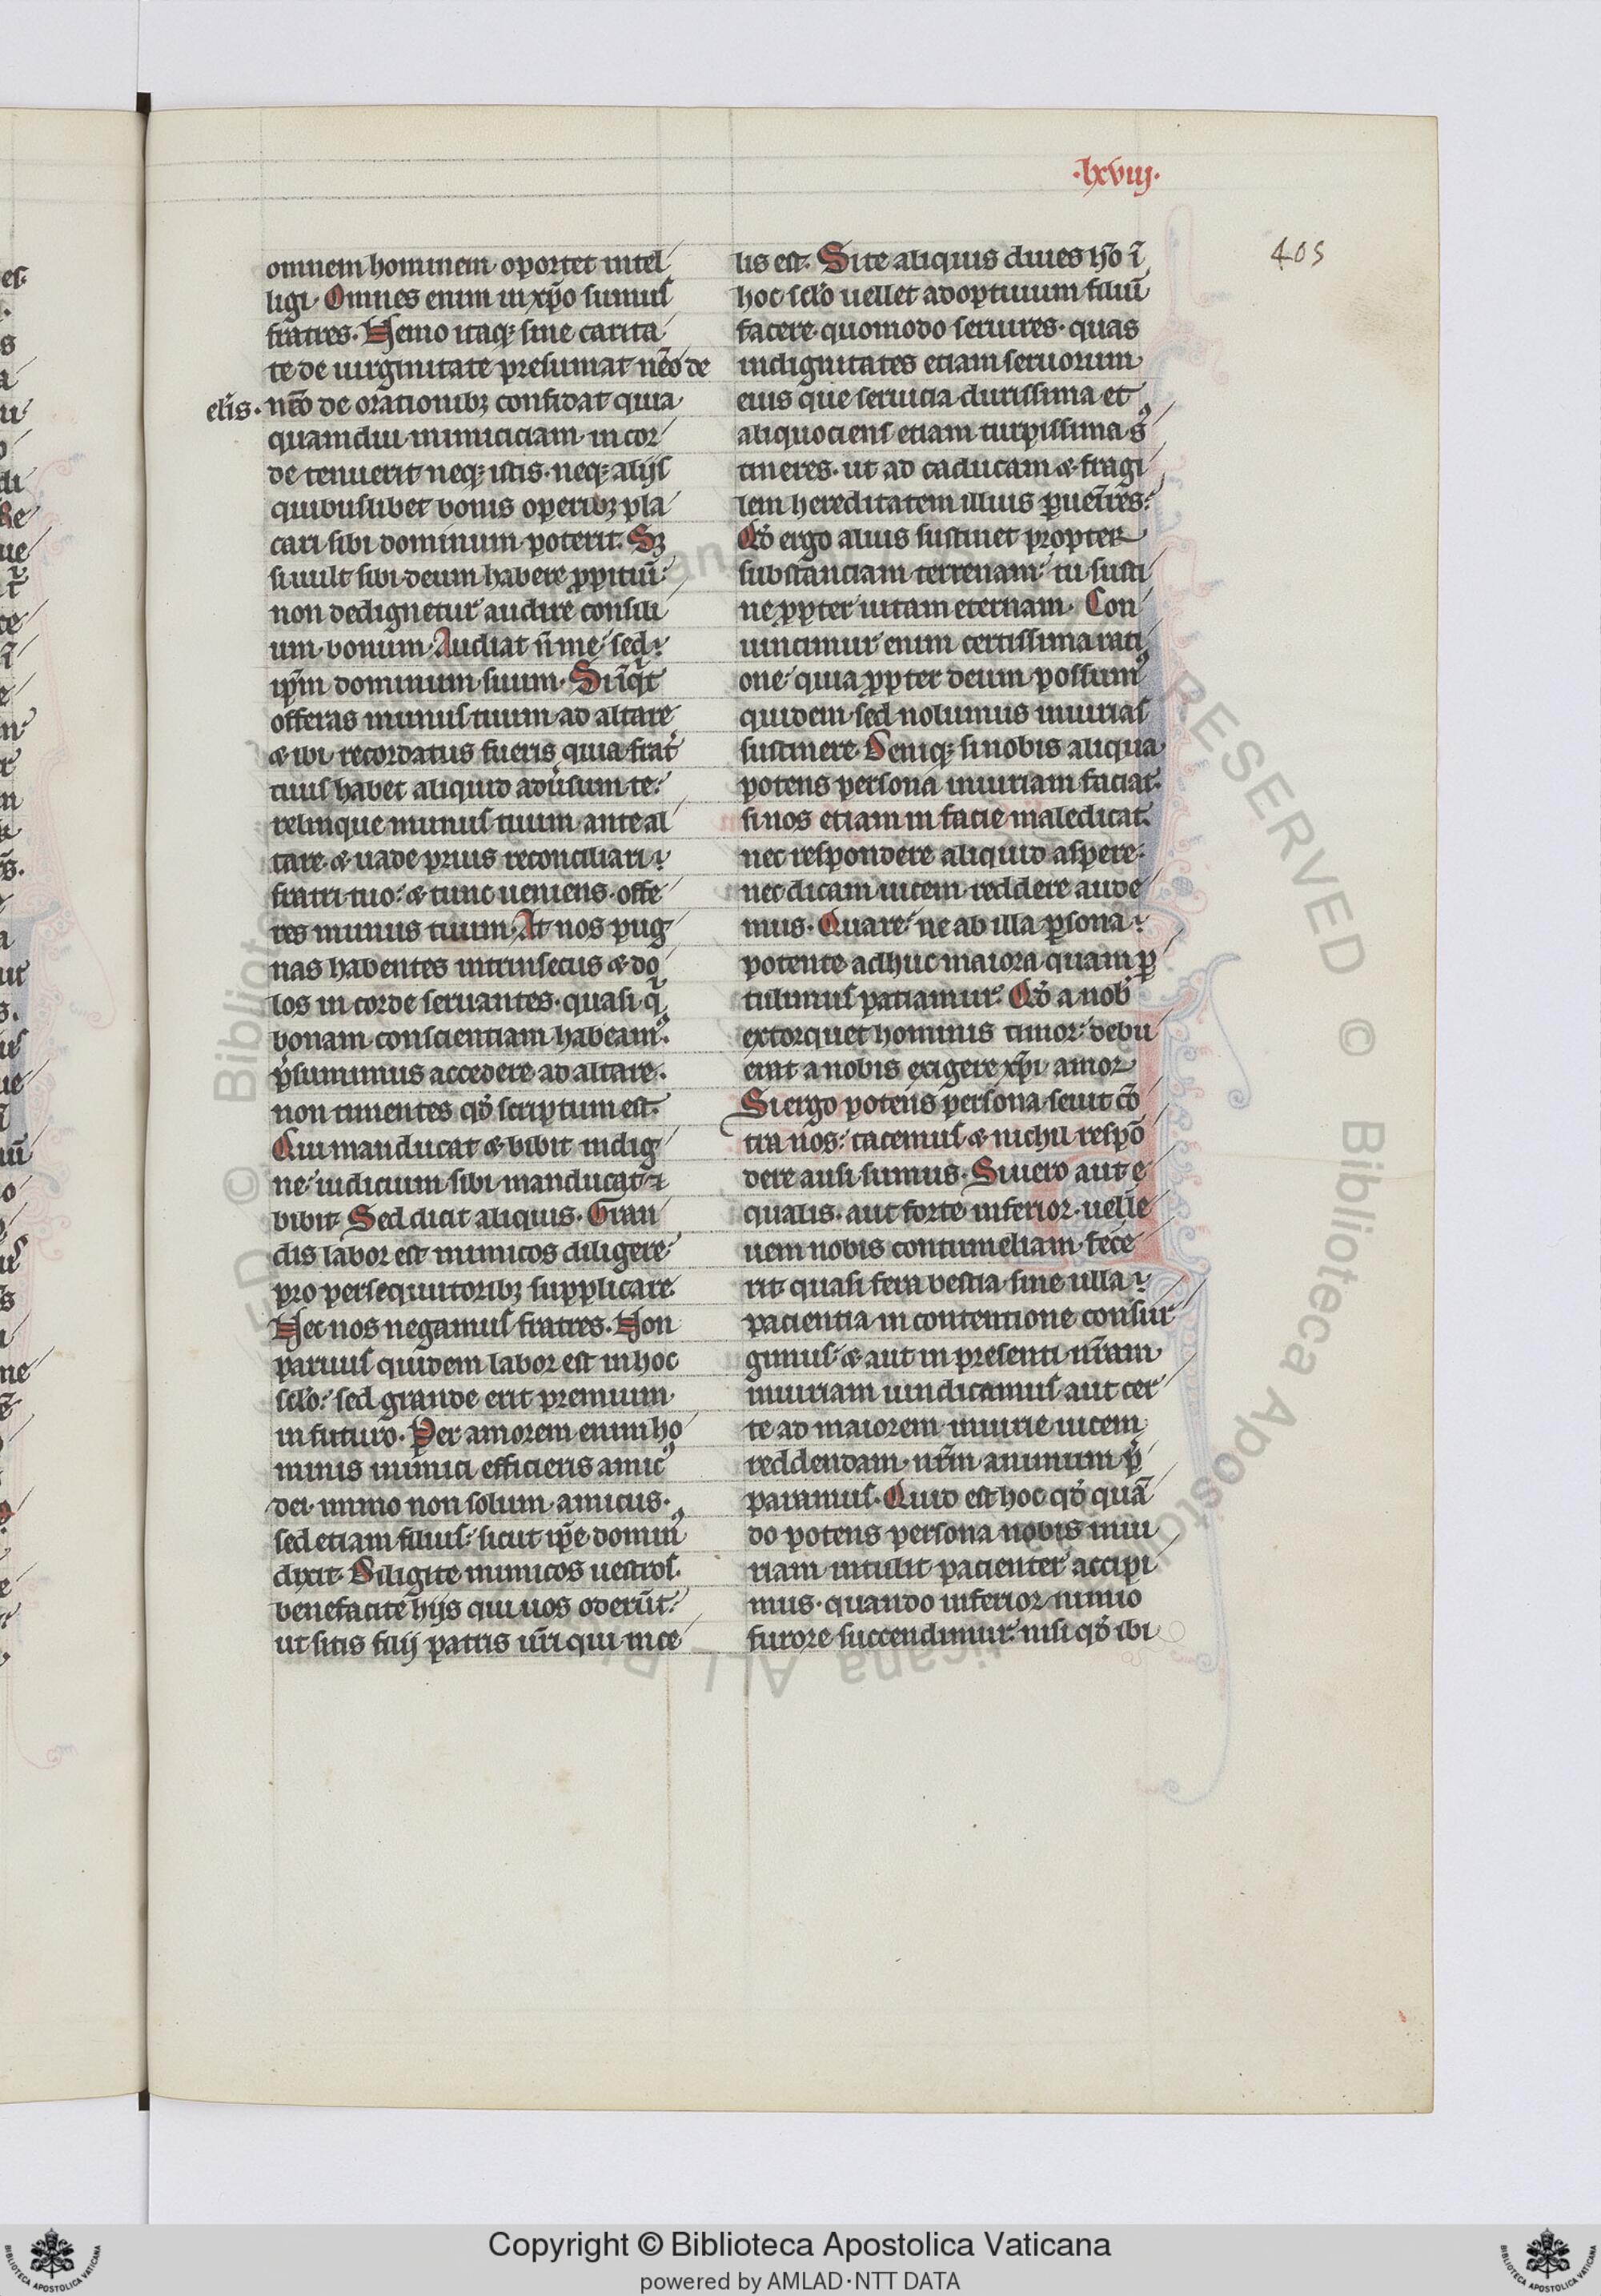 ·lxviij·
405
omnem hominem oportet intel
ligi. Omnes enim in xp̄o sumus
fratres. Nemo itaqꝫ sine carita
te de uirginitate presumat nēo de
elīs. nēo de orationibꝫ confidat quia
quamdiu inimiciciam in cor
de tenuerit neqꝫ istis neqꝫ alijs
quibuslibet bonis operibꝫ pla
cari sibi dominum poterit. Sꝫ
si uult sibi deum habere ꝓpitiū:
non dedignetur audire consili
um bonum. Audiat n̄ me sed
ip̄m dominum suum. Si inq̄t
offeras munus tuum ad altare
⁊ ibi recordatus fueris quia frat̄
tuus habet aliquid adūsum te:
relinque munus tuum ante al
tare ⁊ uade prius reconciliari
fratri tuo: ⁊ tunc ueniens offe
res munus tuum. At nos pug
nas habentes intrinsecus ⁊ do
los in corde seruantes quasi q̄
bonam conscientiam habeamꝰ:
p̄sumimus accedere ad altare.
non timentes qd̓ scriptum est.
Qui manducat ⁊ bibit indig
ne: iudicium sibi manducat ⁊
bibit. Sed dicit aliquis. Gran
dis labor est inimicos diligere
pro persequutoribꝫ supplicare.
Nec nos negamus fratres. Non
paruus quidem labor est in hoc
sc̄lo: sed grande erit premium
in futuro. Per amorem enim ho
minis inimici efficieris amicꝰ
dei. immo non solum amicus.
sed etiam filius: sicut ip̄e dominꝰ
dixit. Diligite inimicos uestros.
benefacite hijs qui uos oderūt:
ut sitis filij patris ur̄i qui in ce
lis est. Si te aliquis diues hō ī
hoc sc̄lo uellet adoptiuum filiū
facere quomodo seruires. quas
indignitates etiam seruorum
eius que seruicia durissima et
aliquociens etiam turpissima sꝰ
tineres. ut ad caducam ⁊ fragi
lem hereditatem illius ꝑuenīres:
Qd̓ ergo alius sustinet propter
substanciam terrenam: tu susti
ne ꝓpter uitam eternam. Con
uincimur enim certissima rati
one: quia ꝓpter deum possumꝰ
quidem sed nolumus iniurias
sustinere. Deniqꝫ si nobis aliqua
potens persona iniuriam faciat.
si nos etiam in facie maledicat.
nec respondere aliquid aspere.
nec dicam uicem reddere aude
mus. Quare: ne ab illa ꝑsona
potente adhuc maiora quam ꝑ
tulimus patiamur. Qd̓ a nob̄
extorquet hominis timor: debu
erat a nobis exigere xp̄i amor
Si ergo potens persona seuit cō
tra nos: tacemus ⁊ nichil respō
dere ausi sumus. Si uero aut e
qualis. aut forte inferior uel le
uem nobis contumeliam fece
rit quasi fera bestia sine ulla
pacientia in contentione consur
gimus: ⁊ aut in presenti nr̄am
iniuriam uindicamus aut cer
te ad maiorem iniurie uicem
reddendam nr̄m animum p̄
paramus. Quid est hoc qd̓ quā
do potens persona nobis iniu
riam intulit pacienter accipi
mus. quando inferior nimio
furore succendimur: nisi qd̓ ibi
Copyright © Biblioteca Apostolica Vaticana
powered by AMLAD·NTT DATA